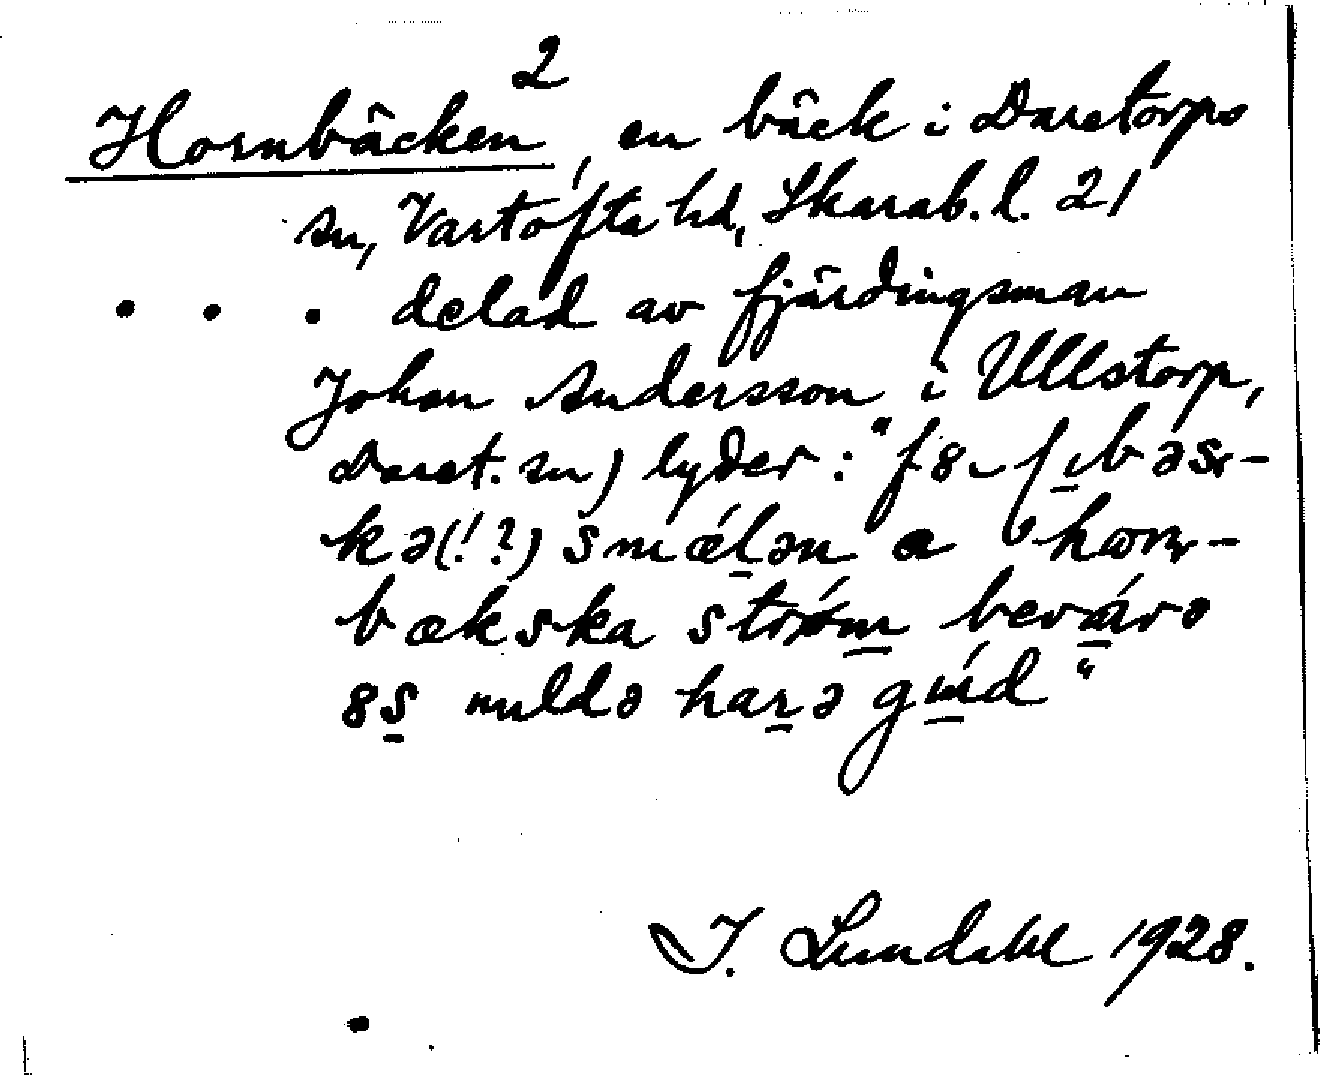 2
Hornbäcken, en bäck i Daretorps
sn, Vartofta hd, Skarab. l. 21
. . . delad av fjärdingsman
Johan Andersson i Ullstorp,
Daret. sn) lyder: "
kə(!?) smǽl̠ən a hωrn-
bækska
8s̠ mildə har̠ə
I. Lundahl 1928.